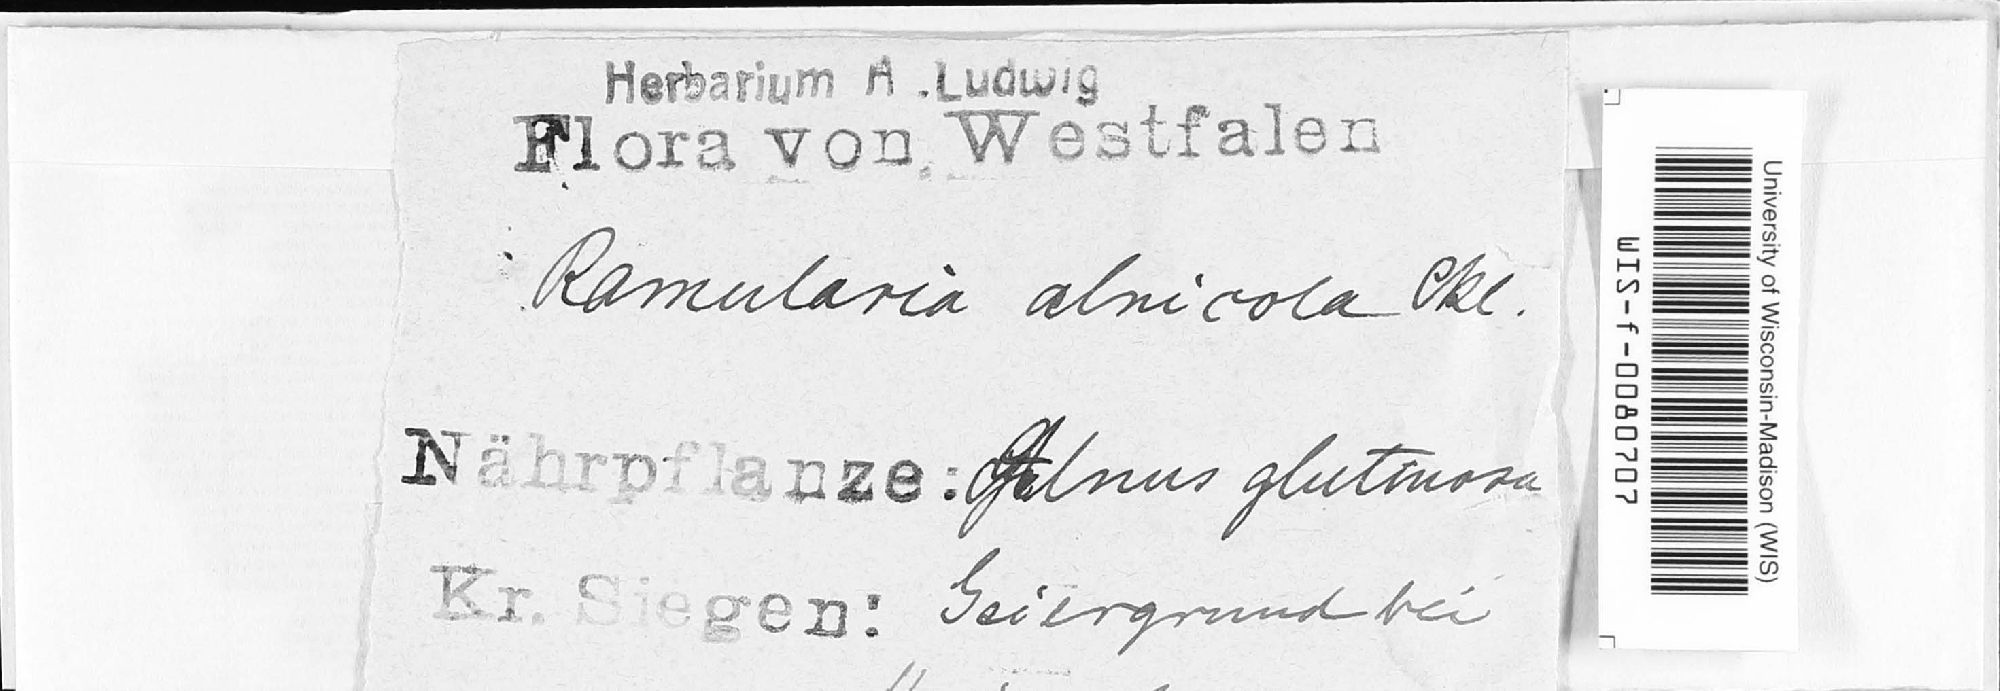 Herbarium A. Ludwig
Flora von Westfalen
Ramularia alnicola Cke.
Nährpflanze: Alnus glutinosa
Kr. Siegen: Geiergrund bei
University of Wisconsin-Madison (WIS)
WIS-f-0080707